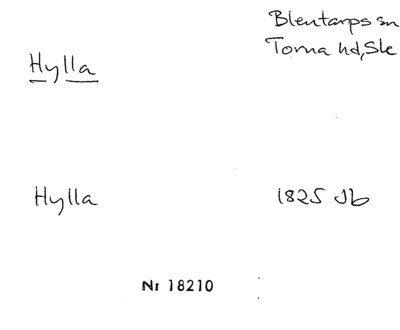 Blentarps sn
Torna hd, Sk
Hylla
Hylla
1825 Jb
Nr 18210